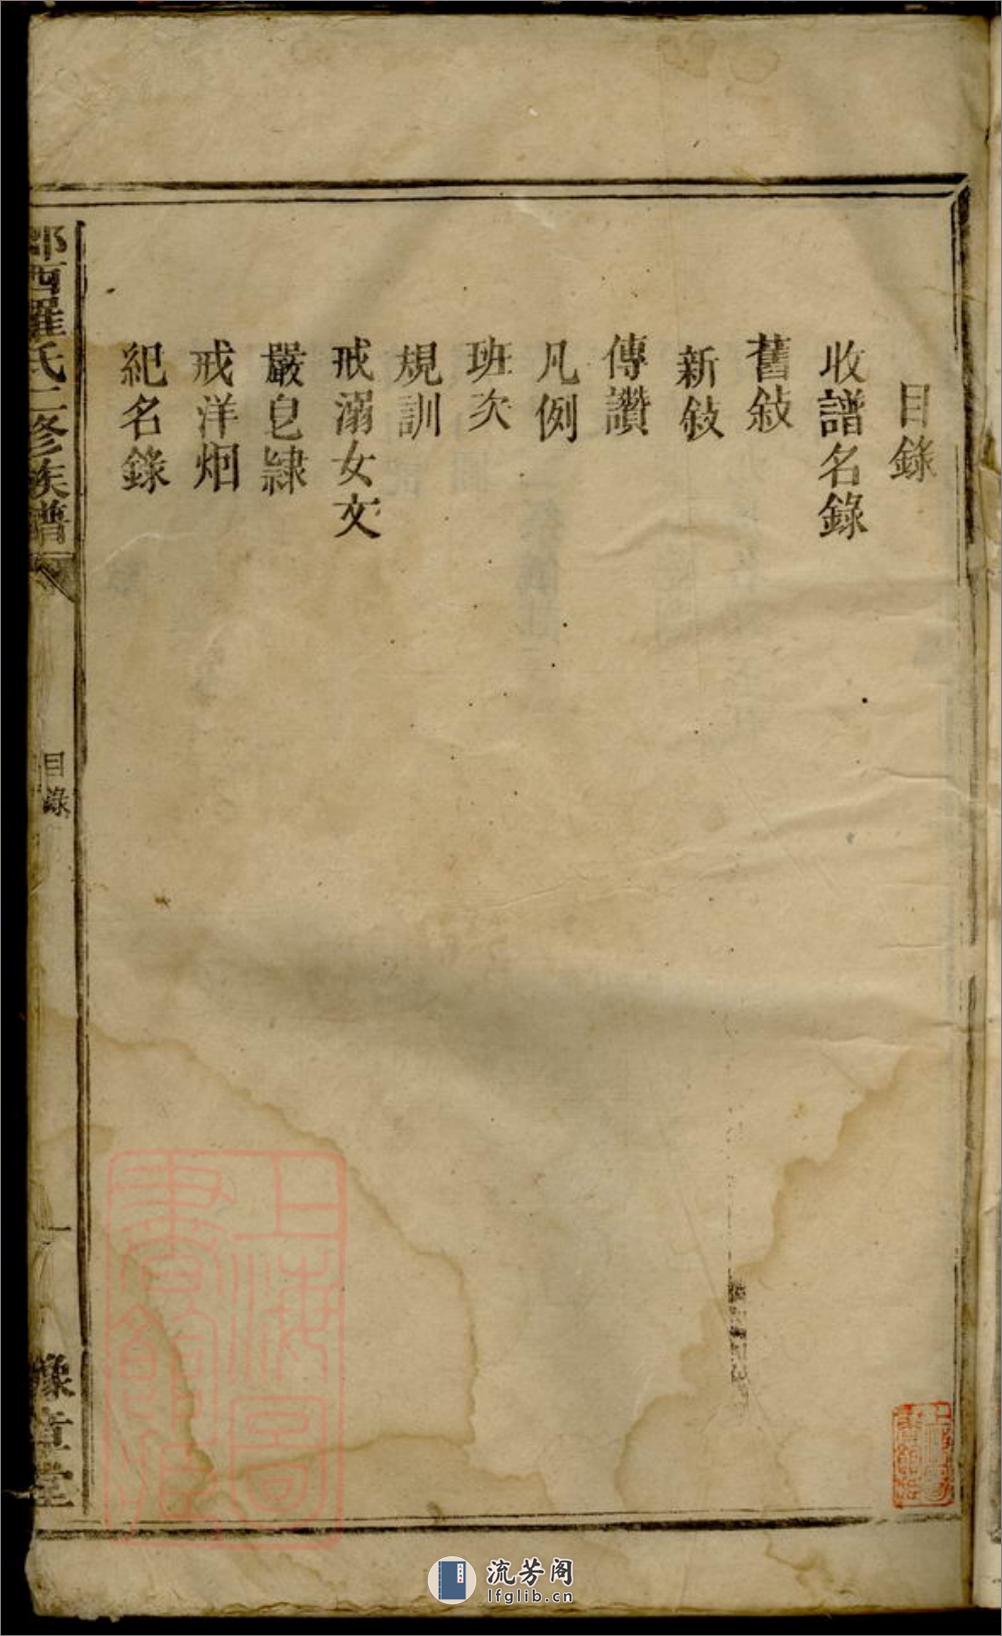 目錄
收譜名錄
舊敍
新敍
傳讚
凡例
班次
規訓
戒溺女文
嚴皂隷
戒洋烟
紀名錄
西羅氏三修族譜
目錄
一
豫章堂
上海圖書館藏
上海圖書館藏
流芳阁
lfglib.cn